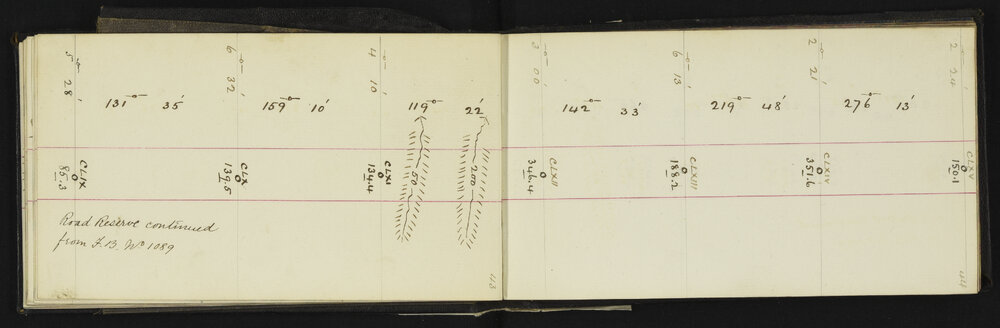 5° 28'
6° 32'
4° 10'
3° 00'
6° 13'
2° 21'
2° 24'
131° 35'
159° 10'
119° 22'
142° 33'
219° 48'
276° 13'
CLIX
85.3
CLX
139.5
CLXI
134.4
50
200
CLXII
346.4
CLXIII
188.2
CLXIV
351.6
CLXV
150.1
Road Reserve continued
from F.B. No 1089
43
44